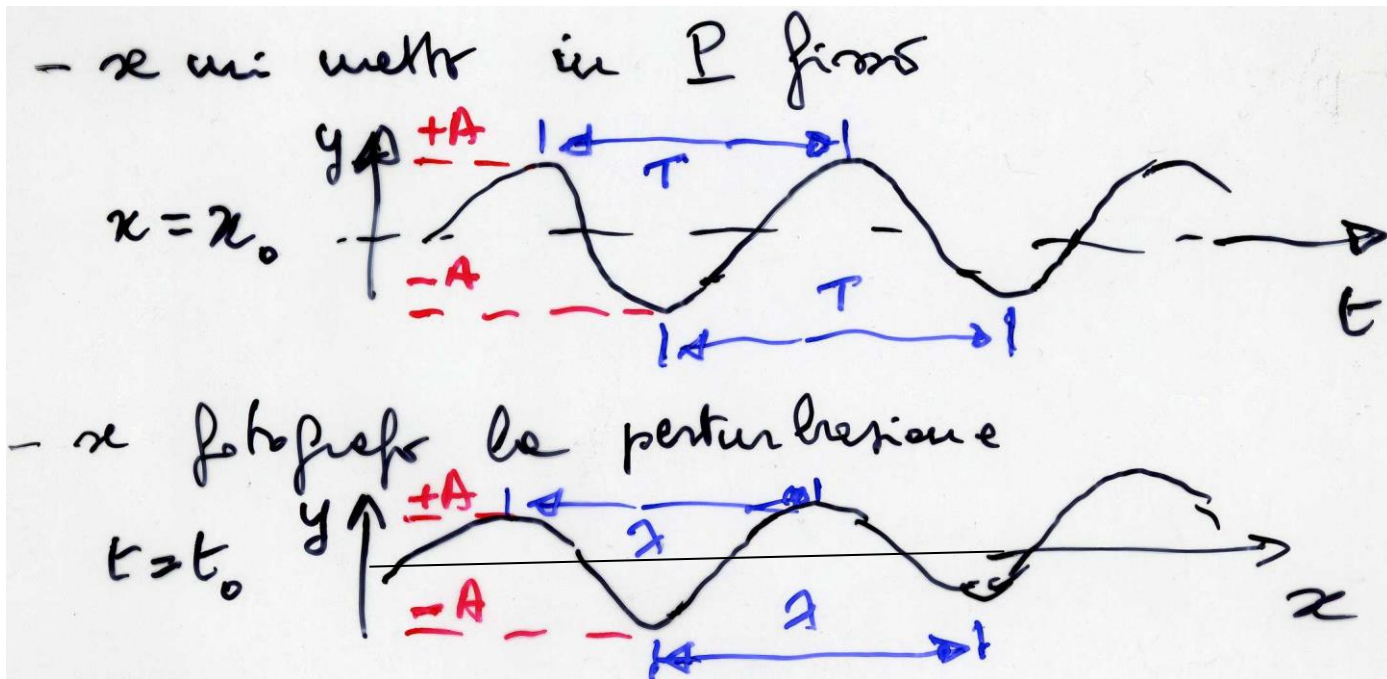 - se mi metto in P fisso
y +A T
x = x₀
-A
T
t
- se fotografo la perturbazione
y +A λ
t = t₀
-A λ
x